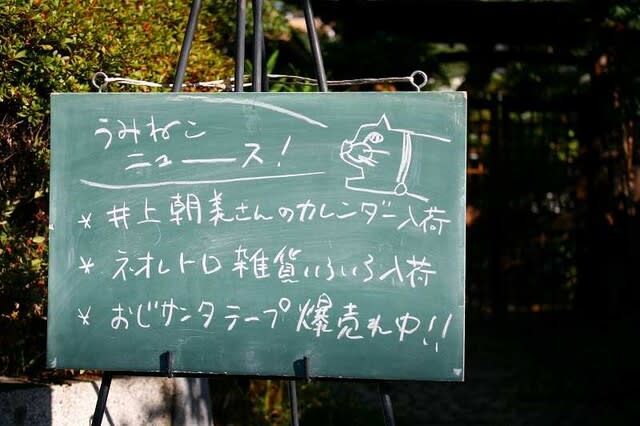 うみねこ
ニュース!
* 井上朝美さんのカレンダー入荷
* ネオレトロ雑貨いろいろ入荷
* おじサンタテープ爆売れ中!!